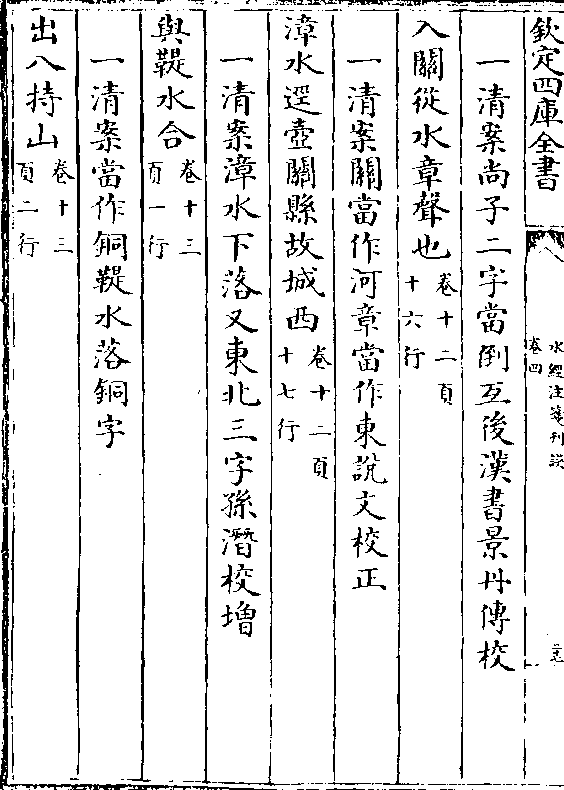 欽定四庫全書
水經注箋刋誤
卷四
一清案尚子二字當倒互後漢書景丹傳校
入關從水章聲也卷十二頁十六行
一清案關當作河章當作東說文校正
漳水逕壺關縣故城西卷十二頁十七行
一清案漳水下落又東北三字孫潛校增
與鞮水合卷十三頁一行
一清案當作銅鞮水落銅字
出八持山卷十三頁二行